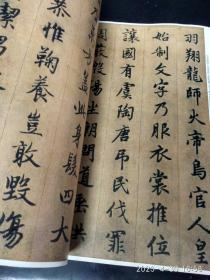 羽翔龍師火帝鳥官人皇
始制文字乃服衣裳推位
讓國有虞陶唐弔民伐罪
殷湯坐朝問道垂
此身髮四大
恭惟鞠養豈敢毀傷
潔男